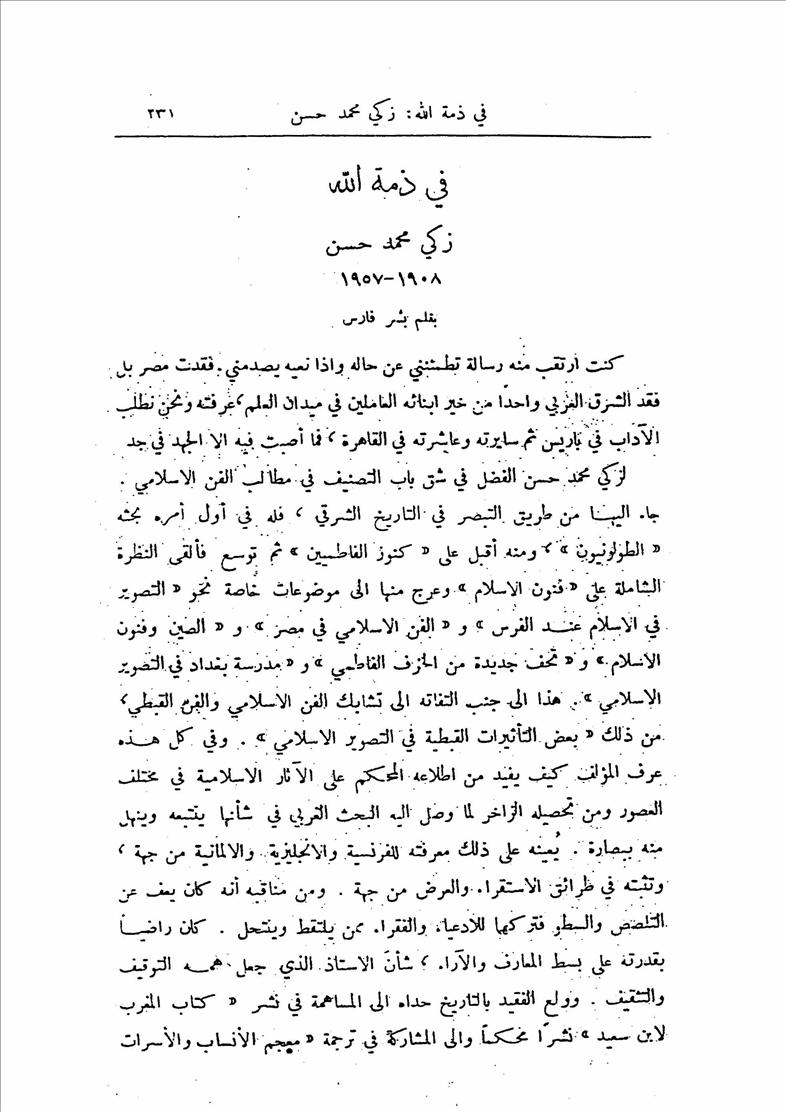 في ذمة الله: زكي محمد حسن ٢٣١
في ذمة الله
زكي محمد حسن
١٩٠٨-١٩٥٧
بقلم بشر فارس
كنت أرتقب منه رسالة تطمئنني عن حاله وإذا نعيه يصدمني. فقدت مصر بل
فقد الشرق العربي واحداً من خير ابنائه العاملين في ميدان العلم، عرفته ونحن نطلب
الآداب في باريس ثم سايرته وعاشرته في القاهرة، فما أصبت فيه الا الجهد في جد
لزكي محمد حسن الفضل في شق باب التصنيف في مطالب الفن الاسلامي.
جاء اليهنا من طريق التبصر في التاريخ الشرقي، فله في أول أمره بحثه
« الطولونيون »، ومنه أقبل على « كنوز الفاطميين » ثم توسع فألقى النظرة
الشاملة على « فنون الاسلام » وعرج منها الى موضوعات خاصة نحو « التصوير
في الاسلام عند الفرس » و « الفن الاسلامي في مصر » و « الصين وفنون
الاسلام » و « تحف جديدة من الخزف الفاطمي » و « مدرسة بغداد في التصوير
الاسلامي ». هذا الى جنب التفاته الى تشابك الفن الاسلامي والفن القبطي،
من ذلك « بعض التأثيرات القبطية في التصوير الاسلامي ». وفي كل هذه
عرف المؤلف كيف يفيد من اطلاعه المحكم على الآثار الاسلامية في مختلف
العصور ومن تحصيله الزاخر لما وصل اليه البحث الغربي في شأنها يتتبعه وينهل
منه ببصارة. يُعينه على ذلك معرفته للفرنسية والانجليزية والالمانية من جهة،
وتثبته في طرائق الاستقراء والعرض من جهة. ومن مناقبه أنه كان يعف عن
التلصص والسطو فتركها للأدعياء والفقراء ممن يلتقط وينتحل. كان راضياً
بقدرته على بسط المعارف والآراء، شأن الاستاذ الذي جعل همه التوقيف
والتثقيف. وولع الفقيد بالتاريخ حداه الى المساهمة في نشر « كتاب المغرب
لابن سعيد » نشرًا محكماً والى المشاركة في ترجمة « معجم الأنساب والأسرات